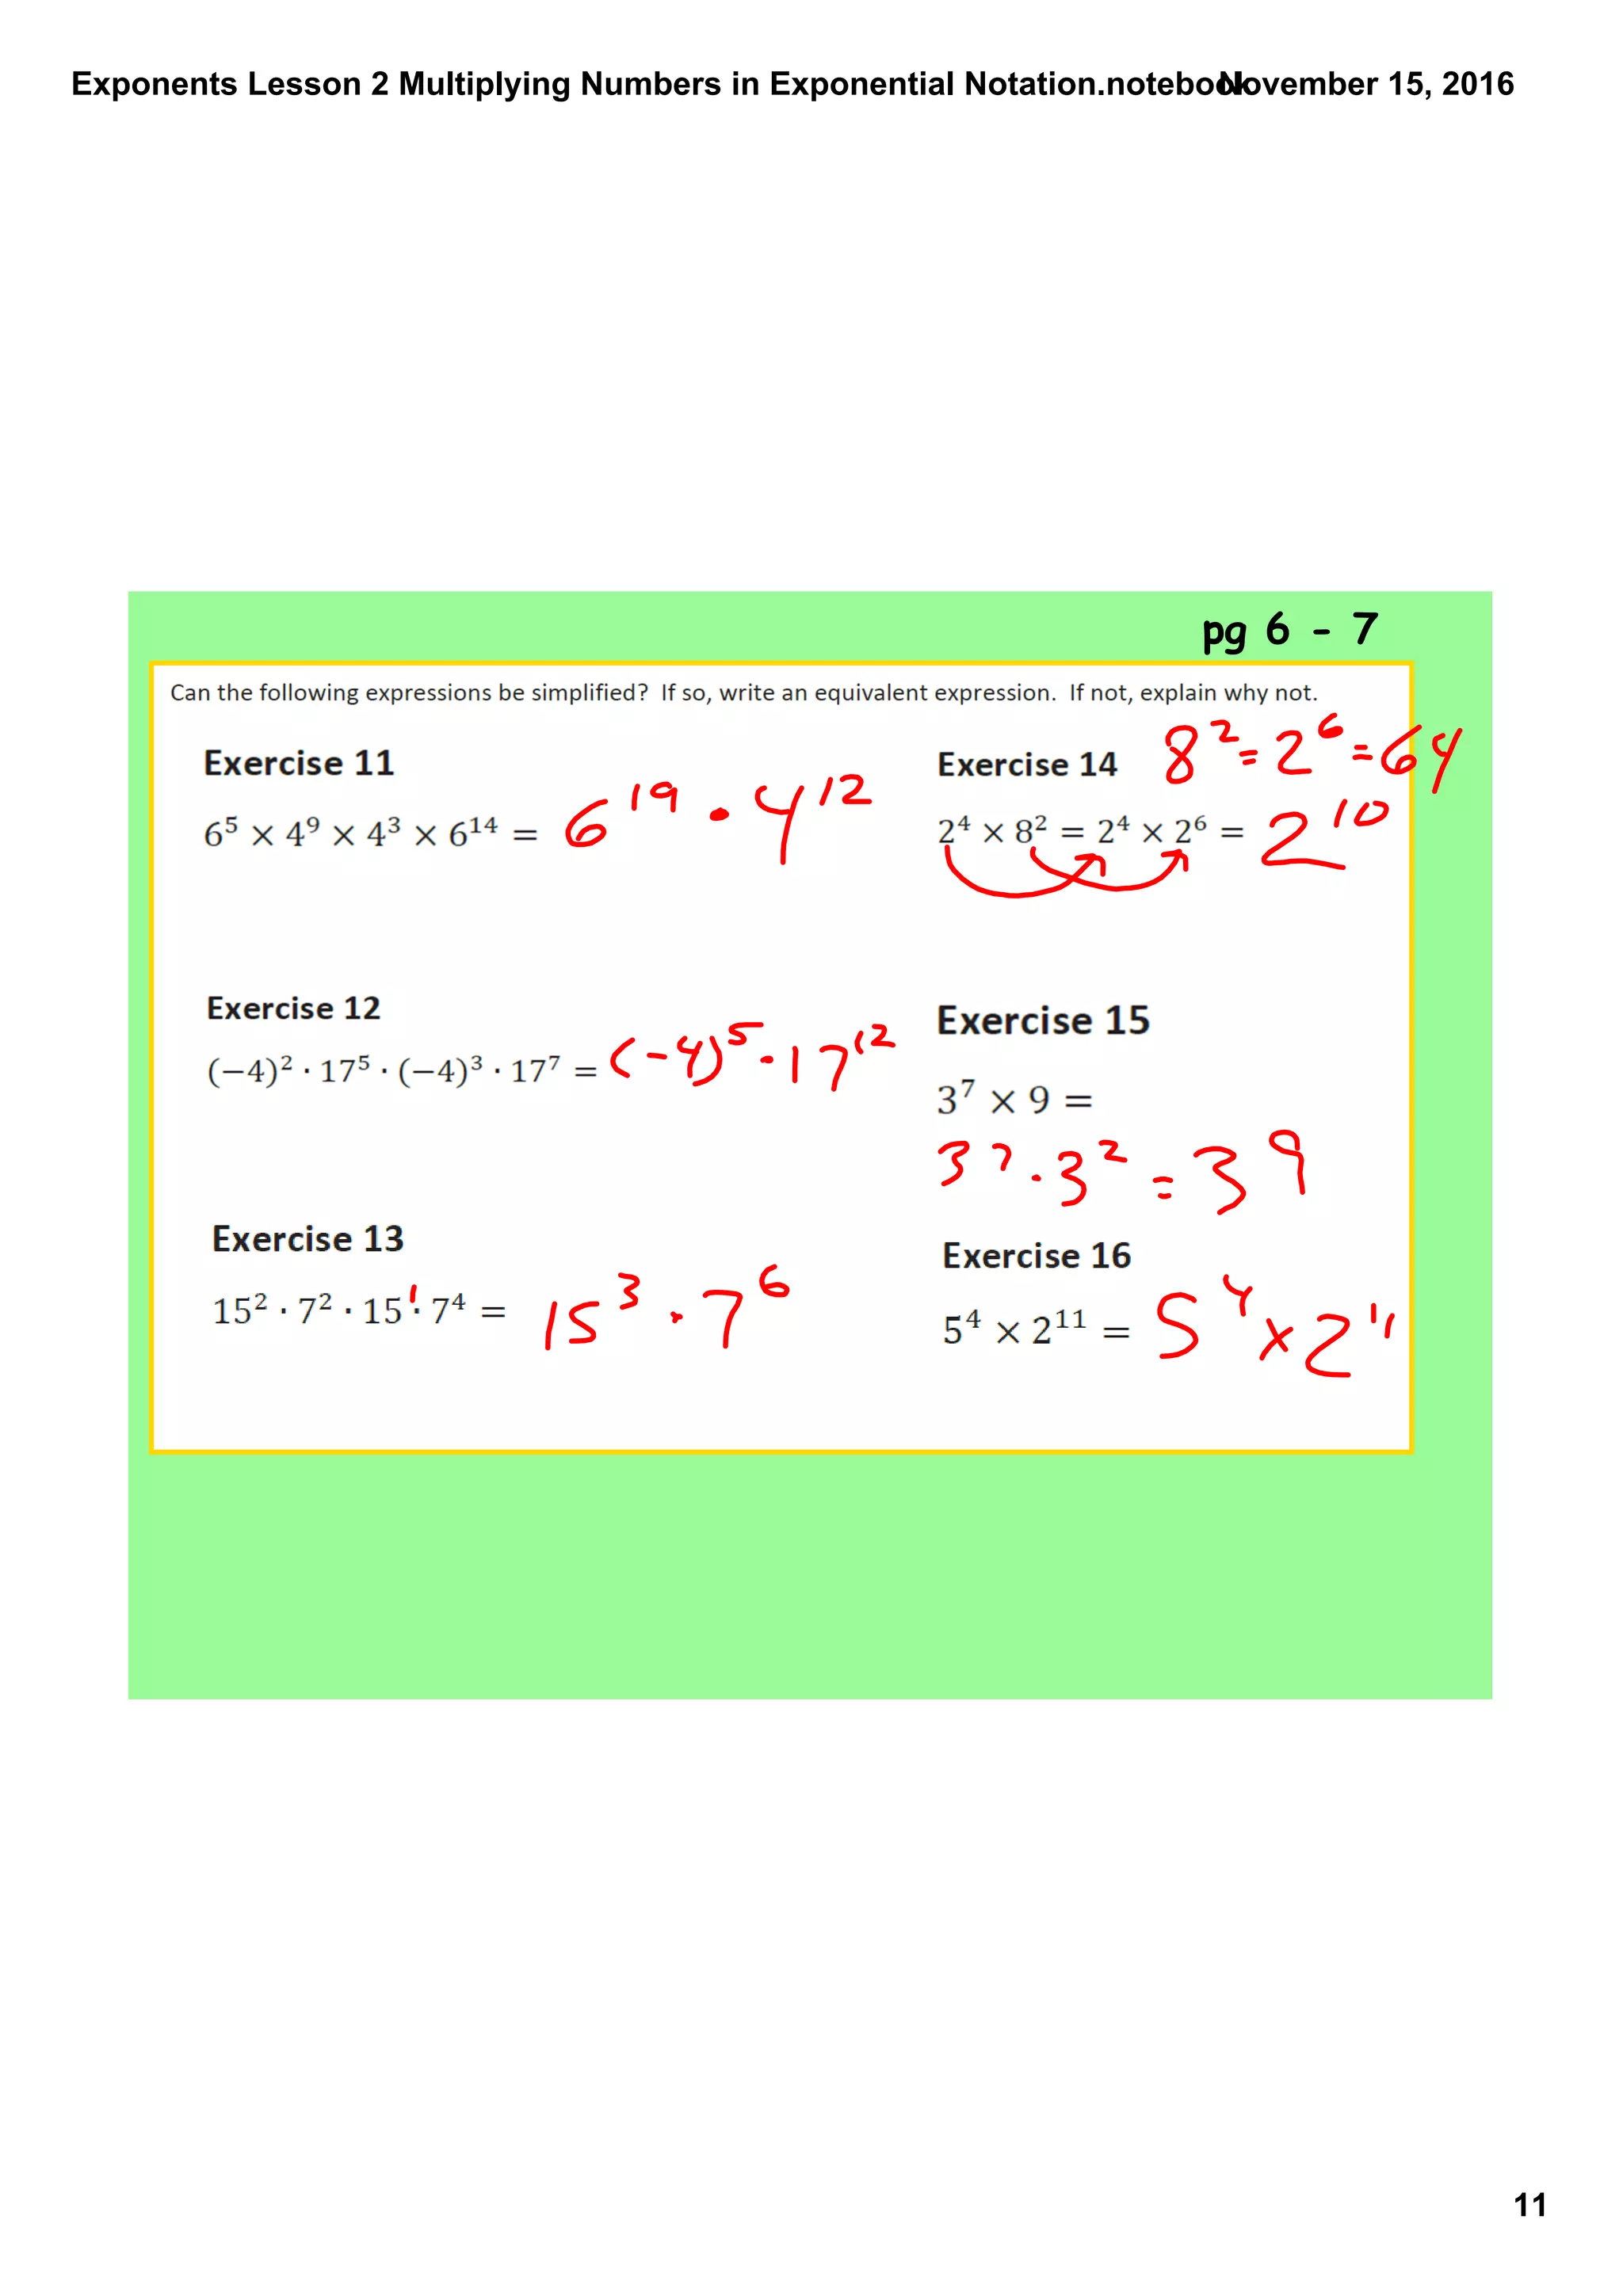 Exponents Lesson 2 Multiplying Numbers in Exponential Notation.notebook
November 15, 2016
pg 6 - 7
Can the following expressions be simplified? If so, write an equivalent expression. If not, explain why not.
Exercise 11
6⁵ × 4⁹ × 4³ × 6¹⁴ = 6¹⁹ · 4¹²
Exercise 12
(−4)² · 17⁵ · (−4)³ · 17⁷ = (-4)⁵ · 17¹²
Exercise 13
15² · 7² · 15¹ · 7⁴ = 15³ · 7⁶
Exercise 14
8² = 2⁶ = 64
2⁴ × 8² = 2⁴ × 2⁶ = 2¹⁰
Exercise 15
3⁷ × 9 =
3⁷ · 3² = 3⁹
Exercise 16
5⁴ × 2¹¹ = 5⁴ × 2¹¹
11